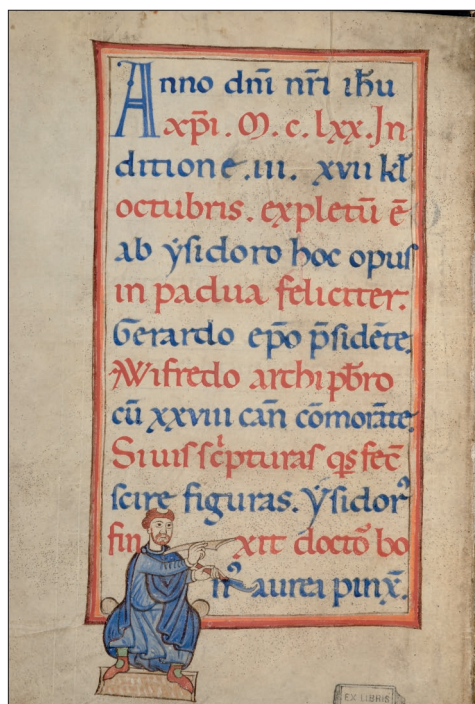 Anno dnī nr̄i ih̄u
xp̄i. M. c. lxx. In
ditione .iii. xvii kł
octubris. expletū ē
ab ẏsidoro hoc opus
in padua feliciter.
Gerardo ep̄o p̄sidēte.
Wifredo archip̄bro
cū xxviii can̄ cōmorāte.
Si uis sc̄pturas qs fec̄
scire figuras. Ẏsidorꝰ
finxit doctō bo
nꝰ aurea pinx̄.
EX LIBRIS